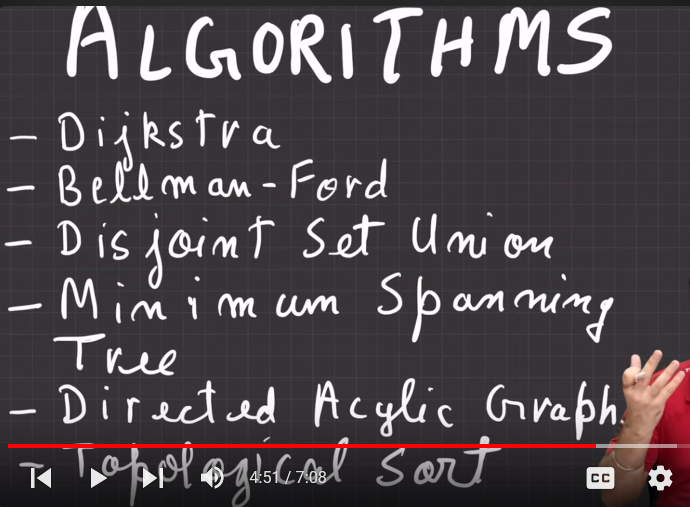 ALGORITHMS
- Dijkstra
- Bellman-Ford
- Disjoint Set Union
- Minimum Spanning
Tree
- Directed Acylic Graph
- Topological Sort
4:51 / 7:08
CC